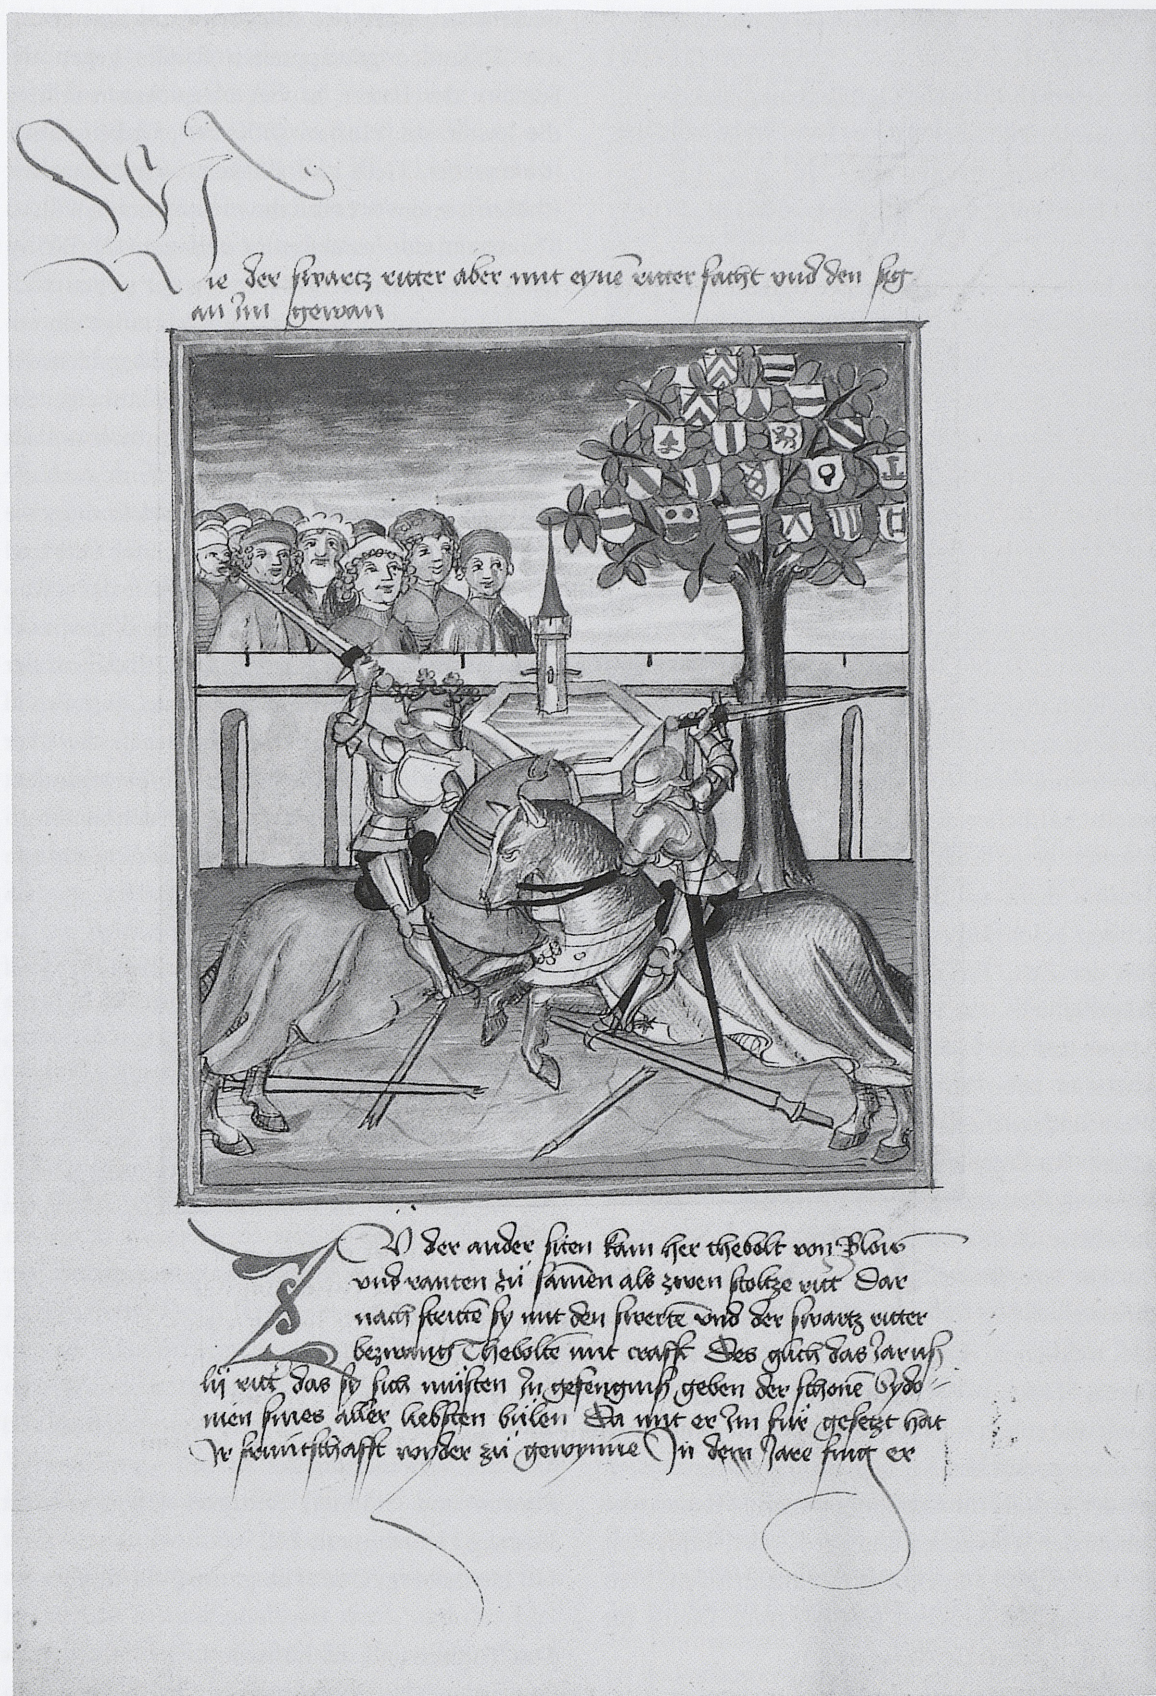 Wie der swartz ritter aber mit eynē ritter facht vnd den sig
an im gewan
ZV der ander siten kam her thebolt von Blois
vnd ranten zů samen als zwen stoltze ritt Dar
nach strittē sy mit den swertē vnd der swartz ritter
bezwang Theboltē mit crafft Des glich das Jar uß
lij ritt das sy sich můsten In gefengniß geben der schonē Sydo-
nien sines aller liebsten bůlen Da mit er Im für gesetzt hat
Ir fruntschafft wyder zů gewynnē In dem Jare fing er